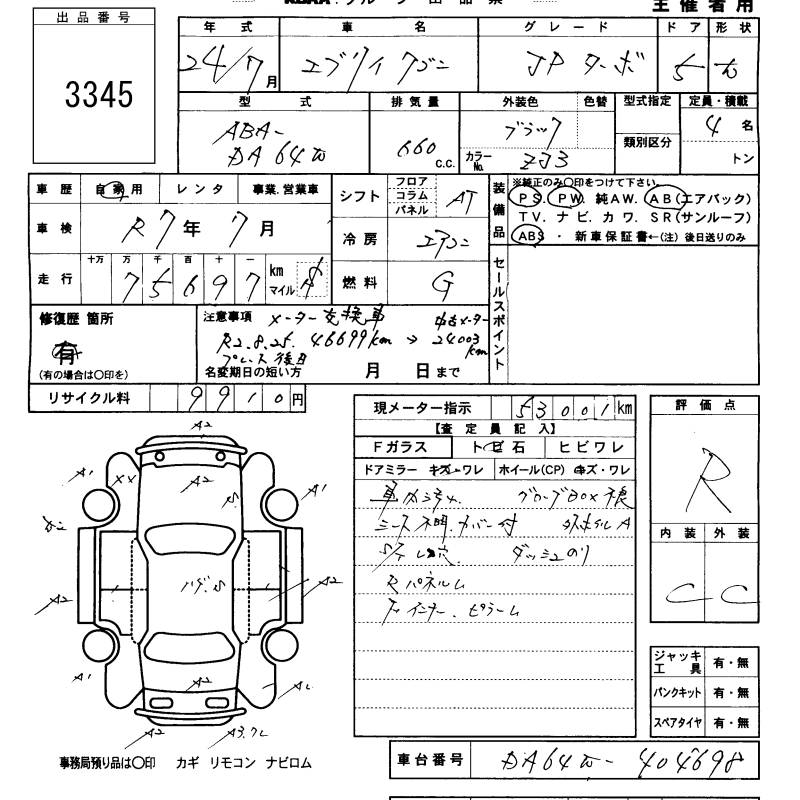 主催者用
出品番号
3345
年式 車名 グレード ドア 形状
24/7月 エブリイワゴン JPターボ 5 W
型式 排気量 外装色 色替 型式指定 定員・積載
ABA-
DA64W 660 c.c. ブラック 類別区分 4名
カラーNo. ZJ3 トン
車歴 自家用 レンタ 事業.営業車 シフト フロア コラム パネル AT
装備品 ※純正のみ〇印をつけて下さい。
PS. PW. 純AW. AB(エアバック)
TV. ナビ. カワ. SR(サンルーフ)
ABS ・ 新車保証書←(注) 後日送りのみ
車検 R7年7月 冷房 エアコン
走行 十万 万 千 百 十 一
75697 km マイル 燃料 G
セールスポイント
修復歴 箇所 有
(有の場合は〇印を)
注意事項 メーター交換車 中古メーター
R2.8.25. 46699km → 24003km
プレス後日
名変期日の短い方 月 日まで
リサイクル料 9910円
現メーター指示 53001km
【査定員記入】
Fガラス トビ石 ヒビワレ
ドアミラー キズ・ワレ ホイール(CP) キズ・ワレ
車内汚れ グローブBOX
シート不明 カバー付 A
穴 ダッシュのり
Rパネルム
ピラーム
評価点
R
内装 外装
C C
A2
A1 XX A2 S A1
A2 ハゲ.S A2
A2 A2
A1 A2 AL
A2 A3.ワレ
ジャッキ工具 有・無
パンクキット 有・無
スペアタイヤ 有・無
事務局預り品は〇印 カギ リモコン ナビロム
車台番号 DA64W-404698